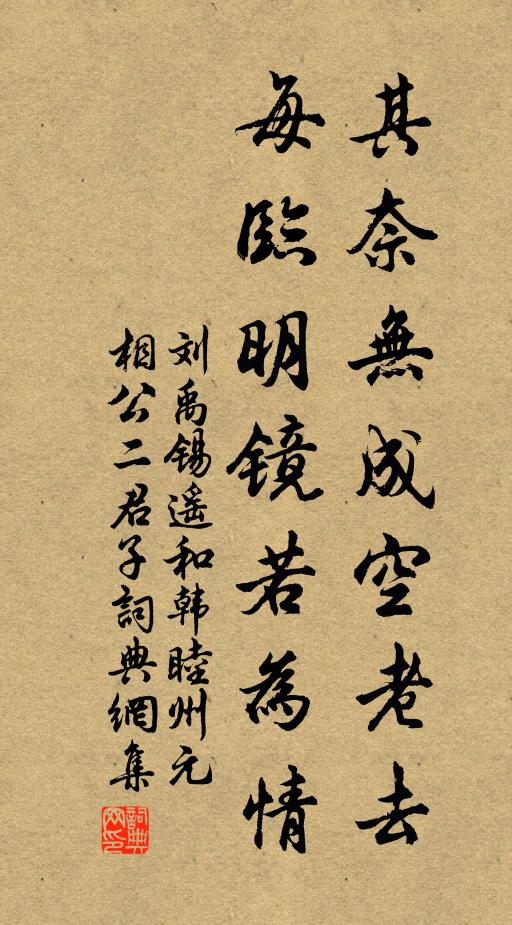 其奈無成空老去
每臨明镜若為情
刘禹锡遥和韩睦州元
相公二君子詞典網集
詞典网印